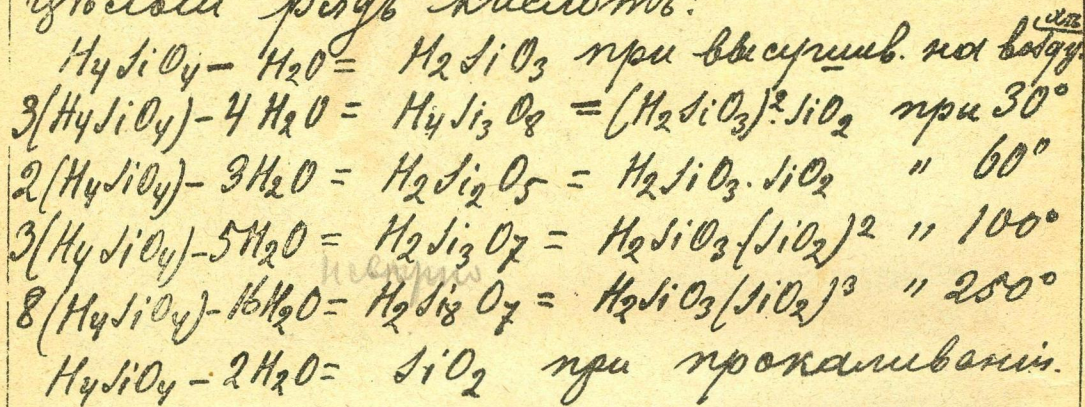 цѣлый рядъ кислотъ:
H4SiO4 – H2O = H2SiO3 при высушив. на воздухѣ
3(H4SiO4) – 4H2O = H4Si3O8 = (H2SiO3)2·SiO2 при 30°
2(H4SiO4) – 3H2O = H2Si2O5 = H2SiO3·SiO2 " 60°
3(H4SiO4) – 5H2O = H2Si3O7 = H2SiO3·(SiO2)2 " 100°
невѣрно
8(H4SiO4) – 16H2O = H2Si8O7 = H2SiO3(SiO2)3 " 250°
H4SiO4 – 2H2O = SiO2 при прокаливанiи.